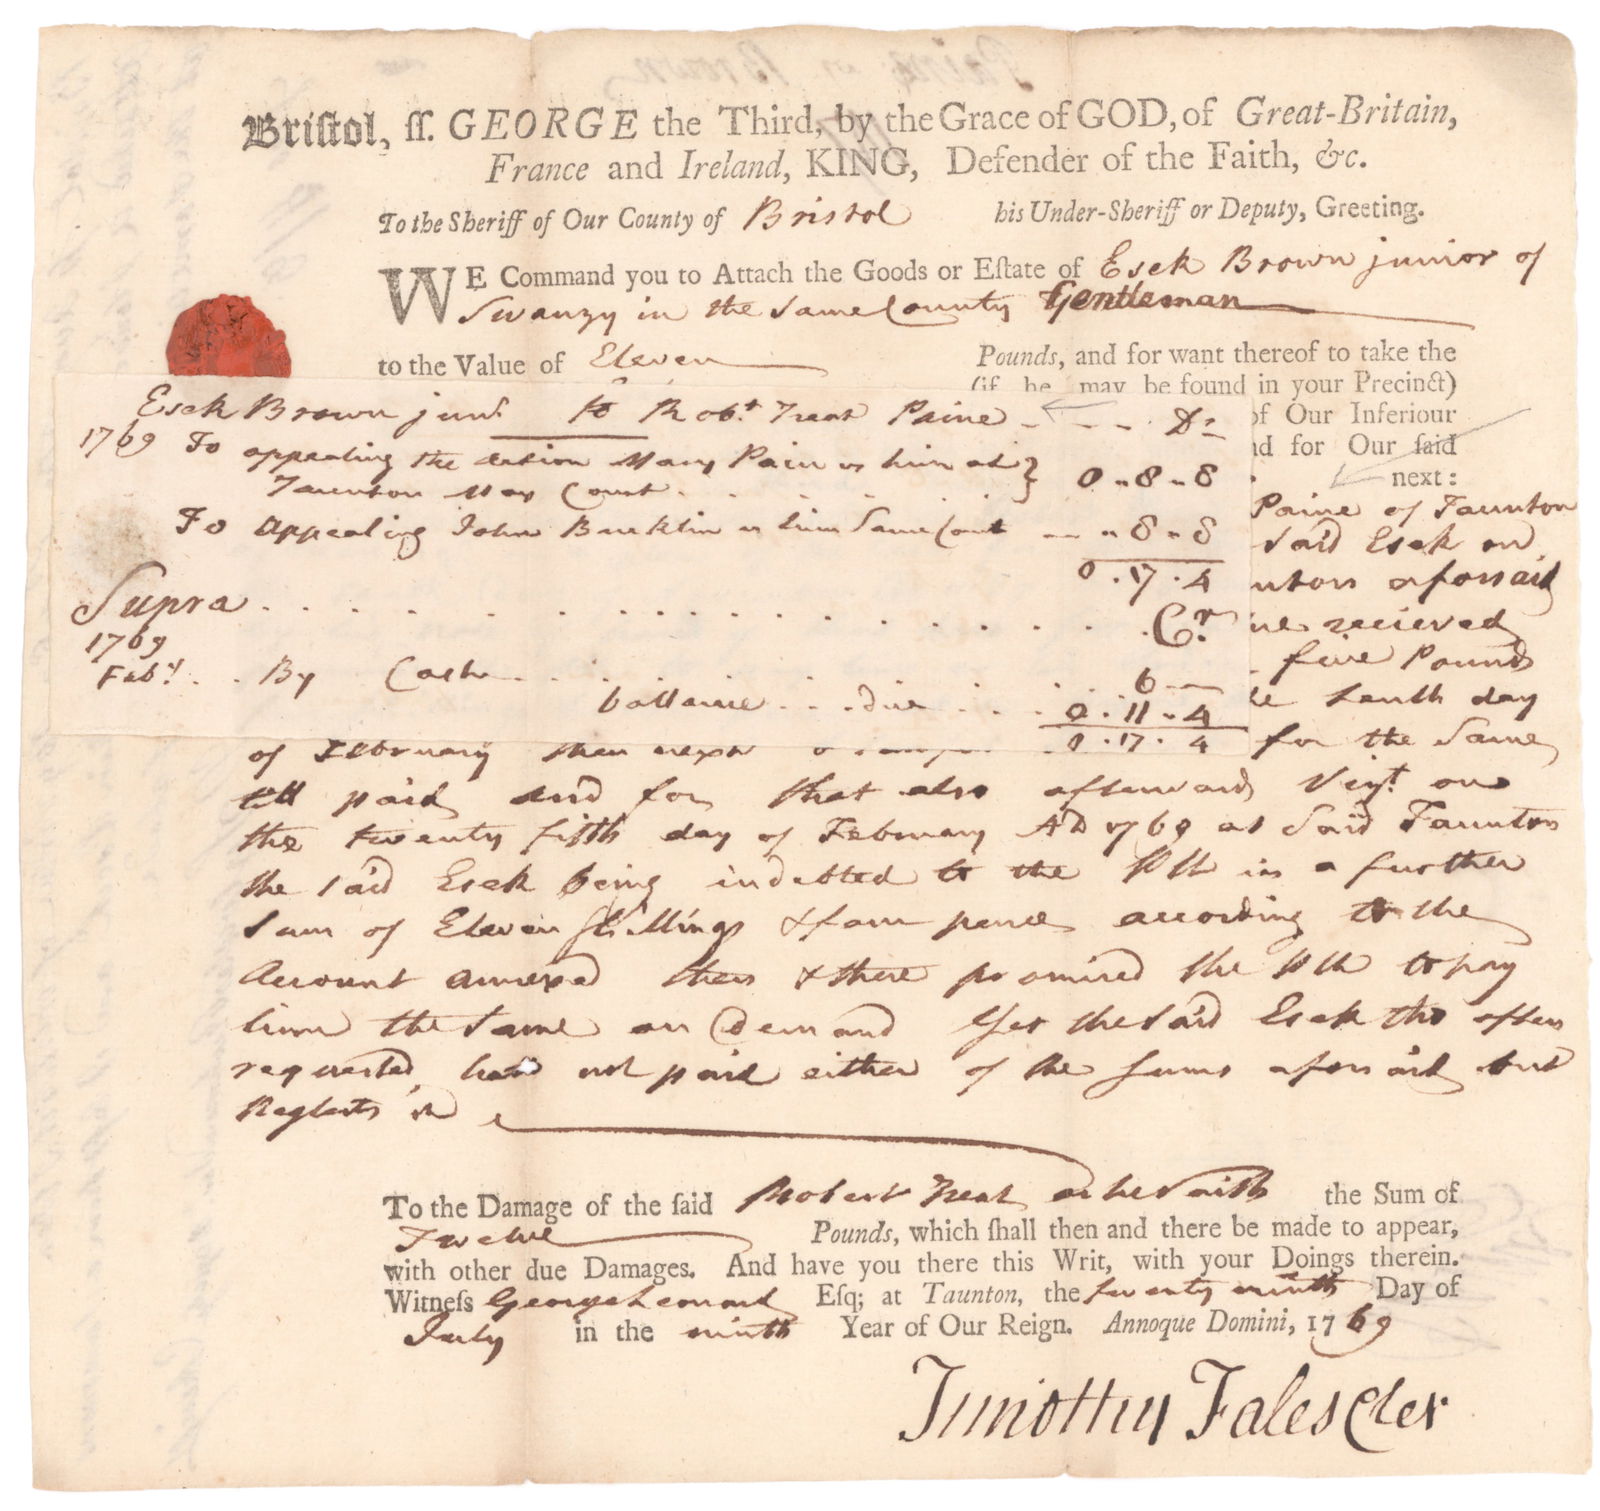 Bristol, ss. GEORGE the Third, by the Grace of GOD, of Great-Britain,
France and Ireland, KING, Defender of the Faith, &c.
To the Sheriff of Our County of Bristol his Under-Sheriff or Deputy, Greeting.
WE Command you to Attach the Goods or Estate of Esek Brown junior of
Swanzy in the same County Gentleman
to the Value of Eleven Pounds, and for want thereof to take the
(if he may be found in your Precinct)
of Our Inferiour
nd for Our said
next:
Esek Brown junr. to Robt. Treat Paine Dr
1769 To appealing the action Mary Pain vs him at
Taunton May Court 0-8-8
To appealing John Bucklin vs him Same Court -8-8
0.17.4
Supra Cr.
1769
Feby. By Cash 6
ballance due 0.11.4
0.17.4
Paine of Taunton
said Esek on
unton aforsaid
ue recieved
five Pounds
he tenth day
of February then next for the Same
paid and for that also afterward Vizt. on
the twenty fifth day of February AD 1769 at said Taunton
the said Esek being indebted to the Plt in a further
Sum of Eleven Shillings & four pence according to the
Account annexed then & there promised the Plt to pay
him the same on Demand Yet the said Esek tho often
requested has not paid either of the sums aforsaid but
Neglects it
To the Damage of the said Robert Treat as he saith the Sum of
Twelve Pounds, which shall then and there be made to appear,
with other due Damages. And have you there this Writ, with your Doings therein.
Witness George Leonard Esq; at Taunton, the twenty ninth Day of
July in the ninth Year of Our Reign. Annoque Domini, 1769
Timothy Fales Cler